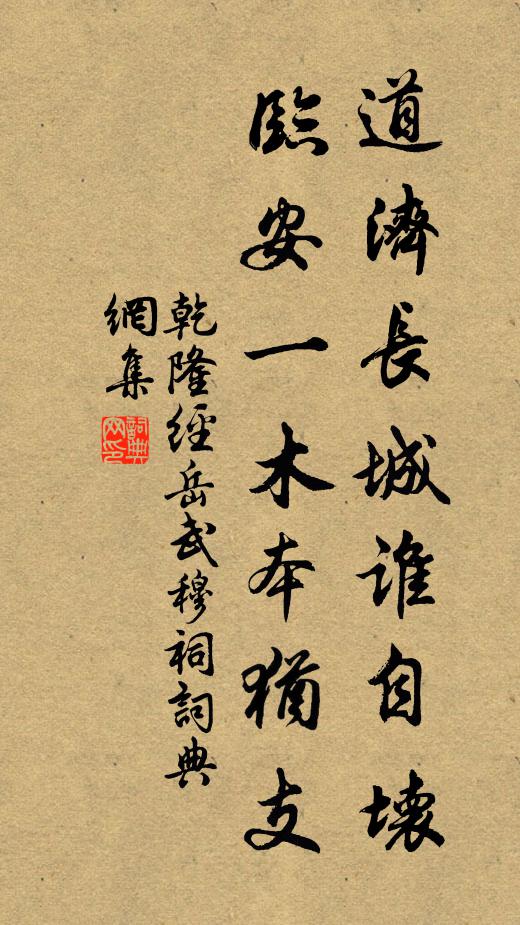 道濟長城誰自壞
臨安一木本猶支
乾隆經岳武穆祠詞典
網集
詞典
网印